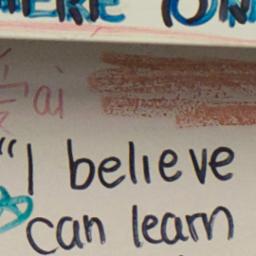 HERE ON
ai
"I believe
can learn